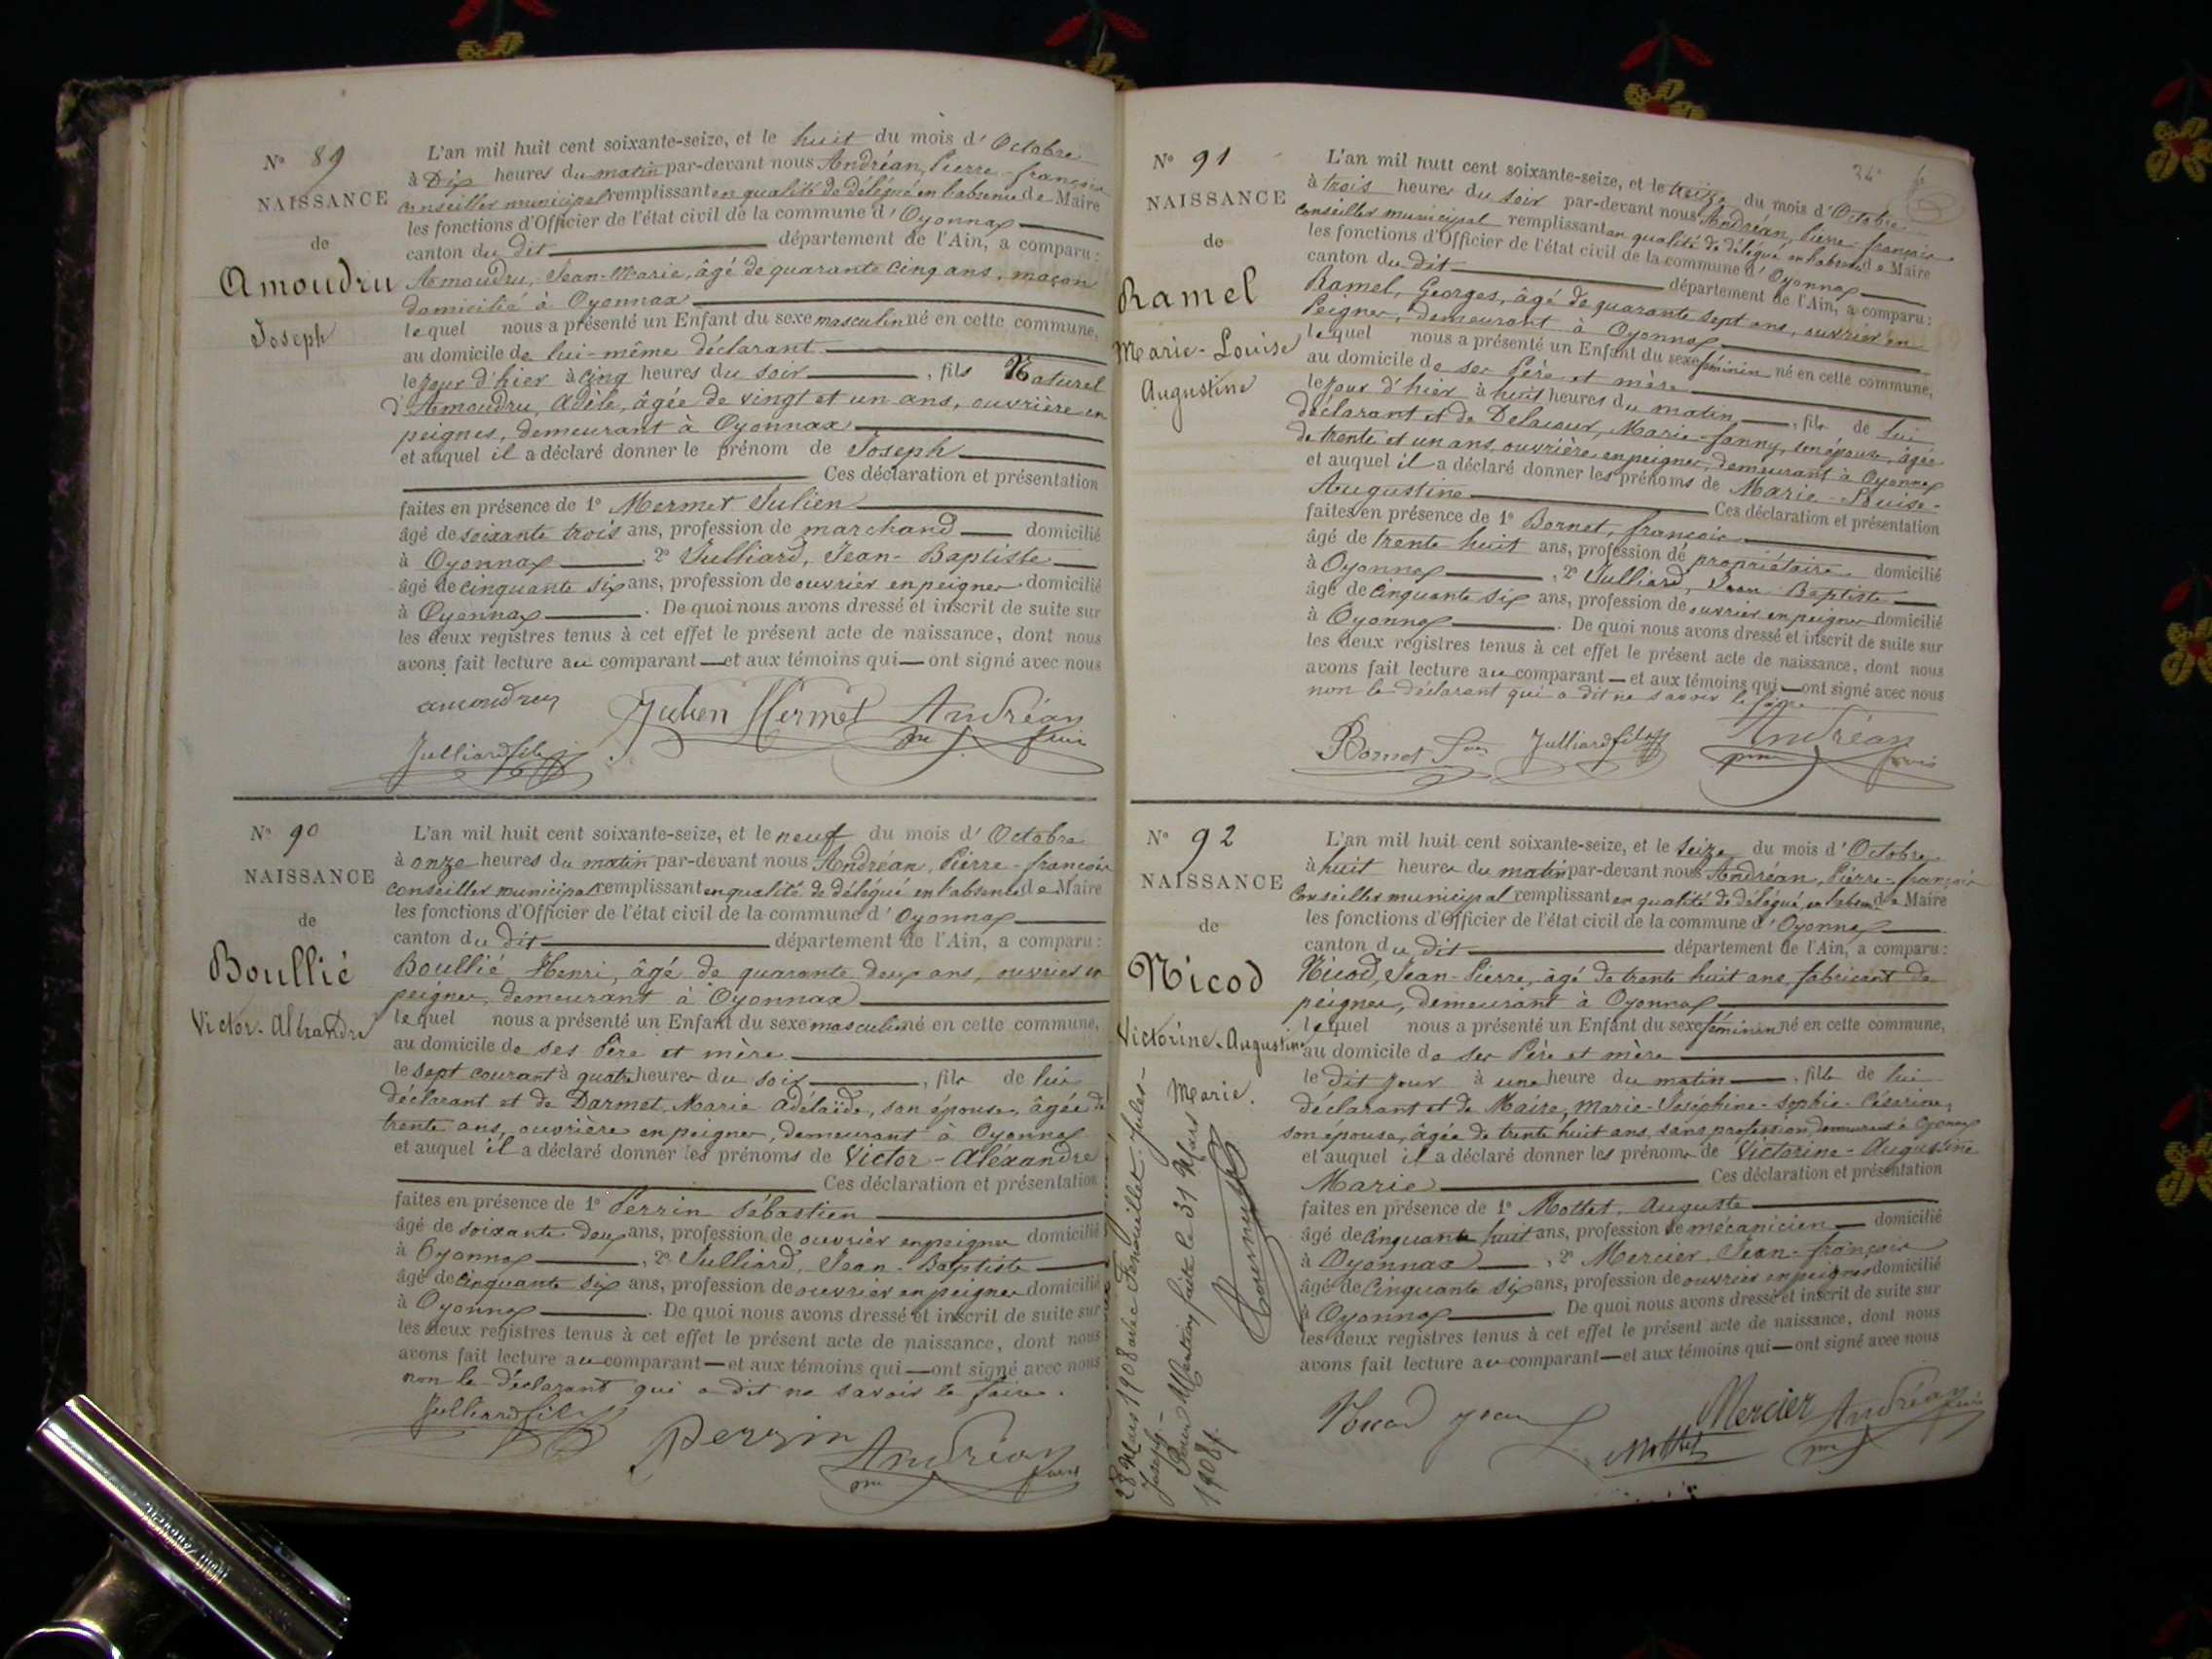 N° 89
NAISSANCE
de
Amoudru
Joseph
L'an mil huit cent soixante-seize, et le huit du mois d'Octobre
à Dix heures du matin par-devant nous Andréan, Pierre-françois
conseiller municipal remplissant en qualité de délégué en l'absence de Maire
les fonctions d'Officier de l'état civil de la commune d'Oyonnax
canton du dit département de l'Ain, a comparu:
Amoudru, Jean-Marie, âgé de quarante cinq ans, maçon
domicilié à Oyonnax
lequel nous a présenté un Enfant du sexe masculin né en cette commune,
au domicile de lui-même déclarant
le jour d'hier à cinq heures du soir, fils Naturel
d'Amoudru, Adèle, âgée de vingt et un ans, ouvrière en
peignes, demeurant à Oyonnax
et auquel il a déclaré donner le prénom de Joseph
Ces déclaration et présentation
faites en présence de 1° Mermet Julien
âgé de soixante trois ans, profession de marchand domicilié
à Oyonnax, 2° Julliard, Jean-Baptiste
âgé de cinquante six ans, profession de ouvrier en peignes domicilié
à Oyonnax. De quoi nous avons dressé et inscrit de suite sur
les deux registres tenus à cet effet le présent acte de naissance, dont nous
avons fait lecture au comparant et aux témoins qui ont signé avec nous
amoudru
Julien Mermet
Andréan
Julliard fils
N° 90
NAISSANCE
de
Boullié
Victor-Aléxandre
L'an mil huit cent soixante-seize, et le neuf du mois d'Octobre
à onze heures du matin par-devant nous Andréan, Pierre-françois
conseiller municipal remplissant en qualité de délégué en l'absence de Maire
les fonctions d'Officier de l'état civil de la commune d'Oyonnax
canton du dit département de l'Ain, a comparu:
Boullié, Henri, âgé de quarante deux ans, ouvrier en
peignes, demeurant à Oyonnax
lequel nous a présenté un Enfant du sexe masculin né en cette commune,
au domicile de ses Père et mère
le sept courant à quatre heures du soir, fils de lui
déclarant et de Darmet, Marie Adélaïde, son épouse, âgée de
trente ans, ouvrière en peignes, demeurant à Oyonnax
et auquel il a déclaré donner les prénoms de Victor-Aléxandre
Ces déclaration et présentation
faites en présence de 1° Perrin Sébastien
âgé de soixante deux ans, profession de ouvrier en peignes domicilié
à Oyonnax, 2° Julliard, Jean-Baptiste
âgé de cinquante six ans, profession de ouvrier en peignes domicilié
à Oyonnax. De quoi nous avons dressé et inscrit de suite sur
les deux registres tenus à cet effet le présent acte de naissance, dont nous
avons fait lecture au comparant et aux témoins qui ont signé avec nous
non le déclarant qui a dit ne savoir le faire.
Julliard fils
Perrin
Andréan
N° 91
NAISSANCE
de
Ramel
Marie-Louise
Augustine
L'an mil huit cent soixante-seize, et le treize du mois d'Octobre
à trois heures du soir par-devant nous Andréan, Pierre-françois
conseiller municipal remplissant en qualité de délégué en l'absence de Maire
les fonctions d'Officier de l'état civil de la commune d'Oyonnax
canton du dit département de l'Ain, a comparu:
Ramel, Georges, âgé de quarante sept ans, ouvrier en
Peignes, demeurant à Oyonnax
lequel nous a présenté un Enfant du sexe féminin né en cette commune,
au domicile de ses Père et mère
le jour d'hier à huit heures du matin, fille de lui
déclarant et de Delacour, Marie-fanny, son épouse, âgée
de trente et un ans, ouvrière en peignes, demeurant à Oyonnax
et auquel il a déclaré donner les prénoms de Marie-Louise-
Augustine Ces déclaration et présentation
faites en présence de 1° Bornet, françois
âgé de trente huit ans, profession de propriétaire domicilié
à Oyonnax, 2° Julliard, Jean-Baptiste
âgé de Cinquante six ans, profession de ouvrier en peignes domicilié
à Oyonnax. De quoi nous avons dressé et inscrit de suite sur
les deux registres tenus à cet effet le présent acte de naissance, dont nous
avons fait lecture au comparant et aux témoins qui ont signé avec nous
non le déclarant qui a dit ne savoir le faire
Bornet
Julliard fils
Andréan
N° 92
NAISSANCE
de
Nicod
Victorine-Augustine
Marie.
28 Mars 1908 avec Fenouillet Jules-
Joseph-
Mention faite le 31 Mars
1908
L'an mil huit cent soixante-seize, et le seize du mois d'Octobre
à huit heures du matin par-devant nous Andréan, Pierre-françois
Conseiller municipal remplissant en qualité de délégué en l'absence de Maire
les fonctions d'Officier de l'état civil de la commune d'Oyonnax
canton du dit département de l'Ain, a comparu:
Nicod, Jean-Pierre, âgé de trente huit ans, fabricant de
peignes, demeurant à Oyonnax
lequel nous a présenté un Enfant du sexe féminin né en cette commune,
au domicile de ses Père et mère
le dit jour à une heure du matin, fille de lui
déclarant et de Maire, Marie-Joséphine-Sophie-Césarine,
son épouse, âgée de trente huit ans, sans profession, demeurant à Oyonnax
et auquel il a déclaré donner les prénoms de Victorine-Augustine
Marie Ces déclaration et présentation
faites en présence de 1° Mottet, Auguste
âgé de Cinquante huit ans, profession de mécanicien domicilié
à Oyonnax, 2° Mercier, Jean-françois
âgé de Cinquante six ans, profession de ouvrier en peignes domicilié
à Oyonnax. De quoi nous avons dressé et inscrit de suite sur
les deux registres tenus à cet effet le présent acte de naissance, dont nous
avons fait lecture au comparant et aux témoins qui ont signé avec nous
Nicod jean
Mottet
Mercier
Andréan